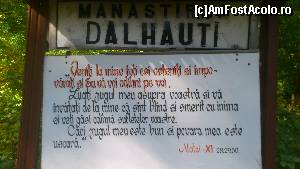 [c]AmFostAcolo.ro
MANASTIREA
DALHAUTI
„Veniţi la mine toţi cei osteniţi si împo-
văraţi si Eu vă voi odihni pe voi.
Luaţi jugul meu asupra voastră si vă
învăţati de la mine că sînt blînd si smerit cu inima
si veti găsi odihnă sufletelor voastre.
Căci jugul meu este bun si povara mea este
usoară."
Matei - XI